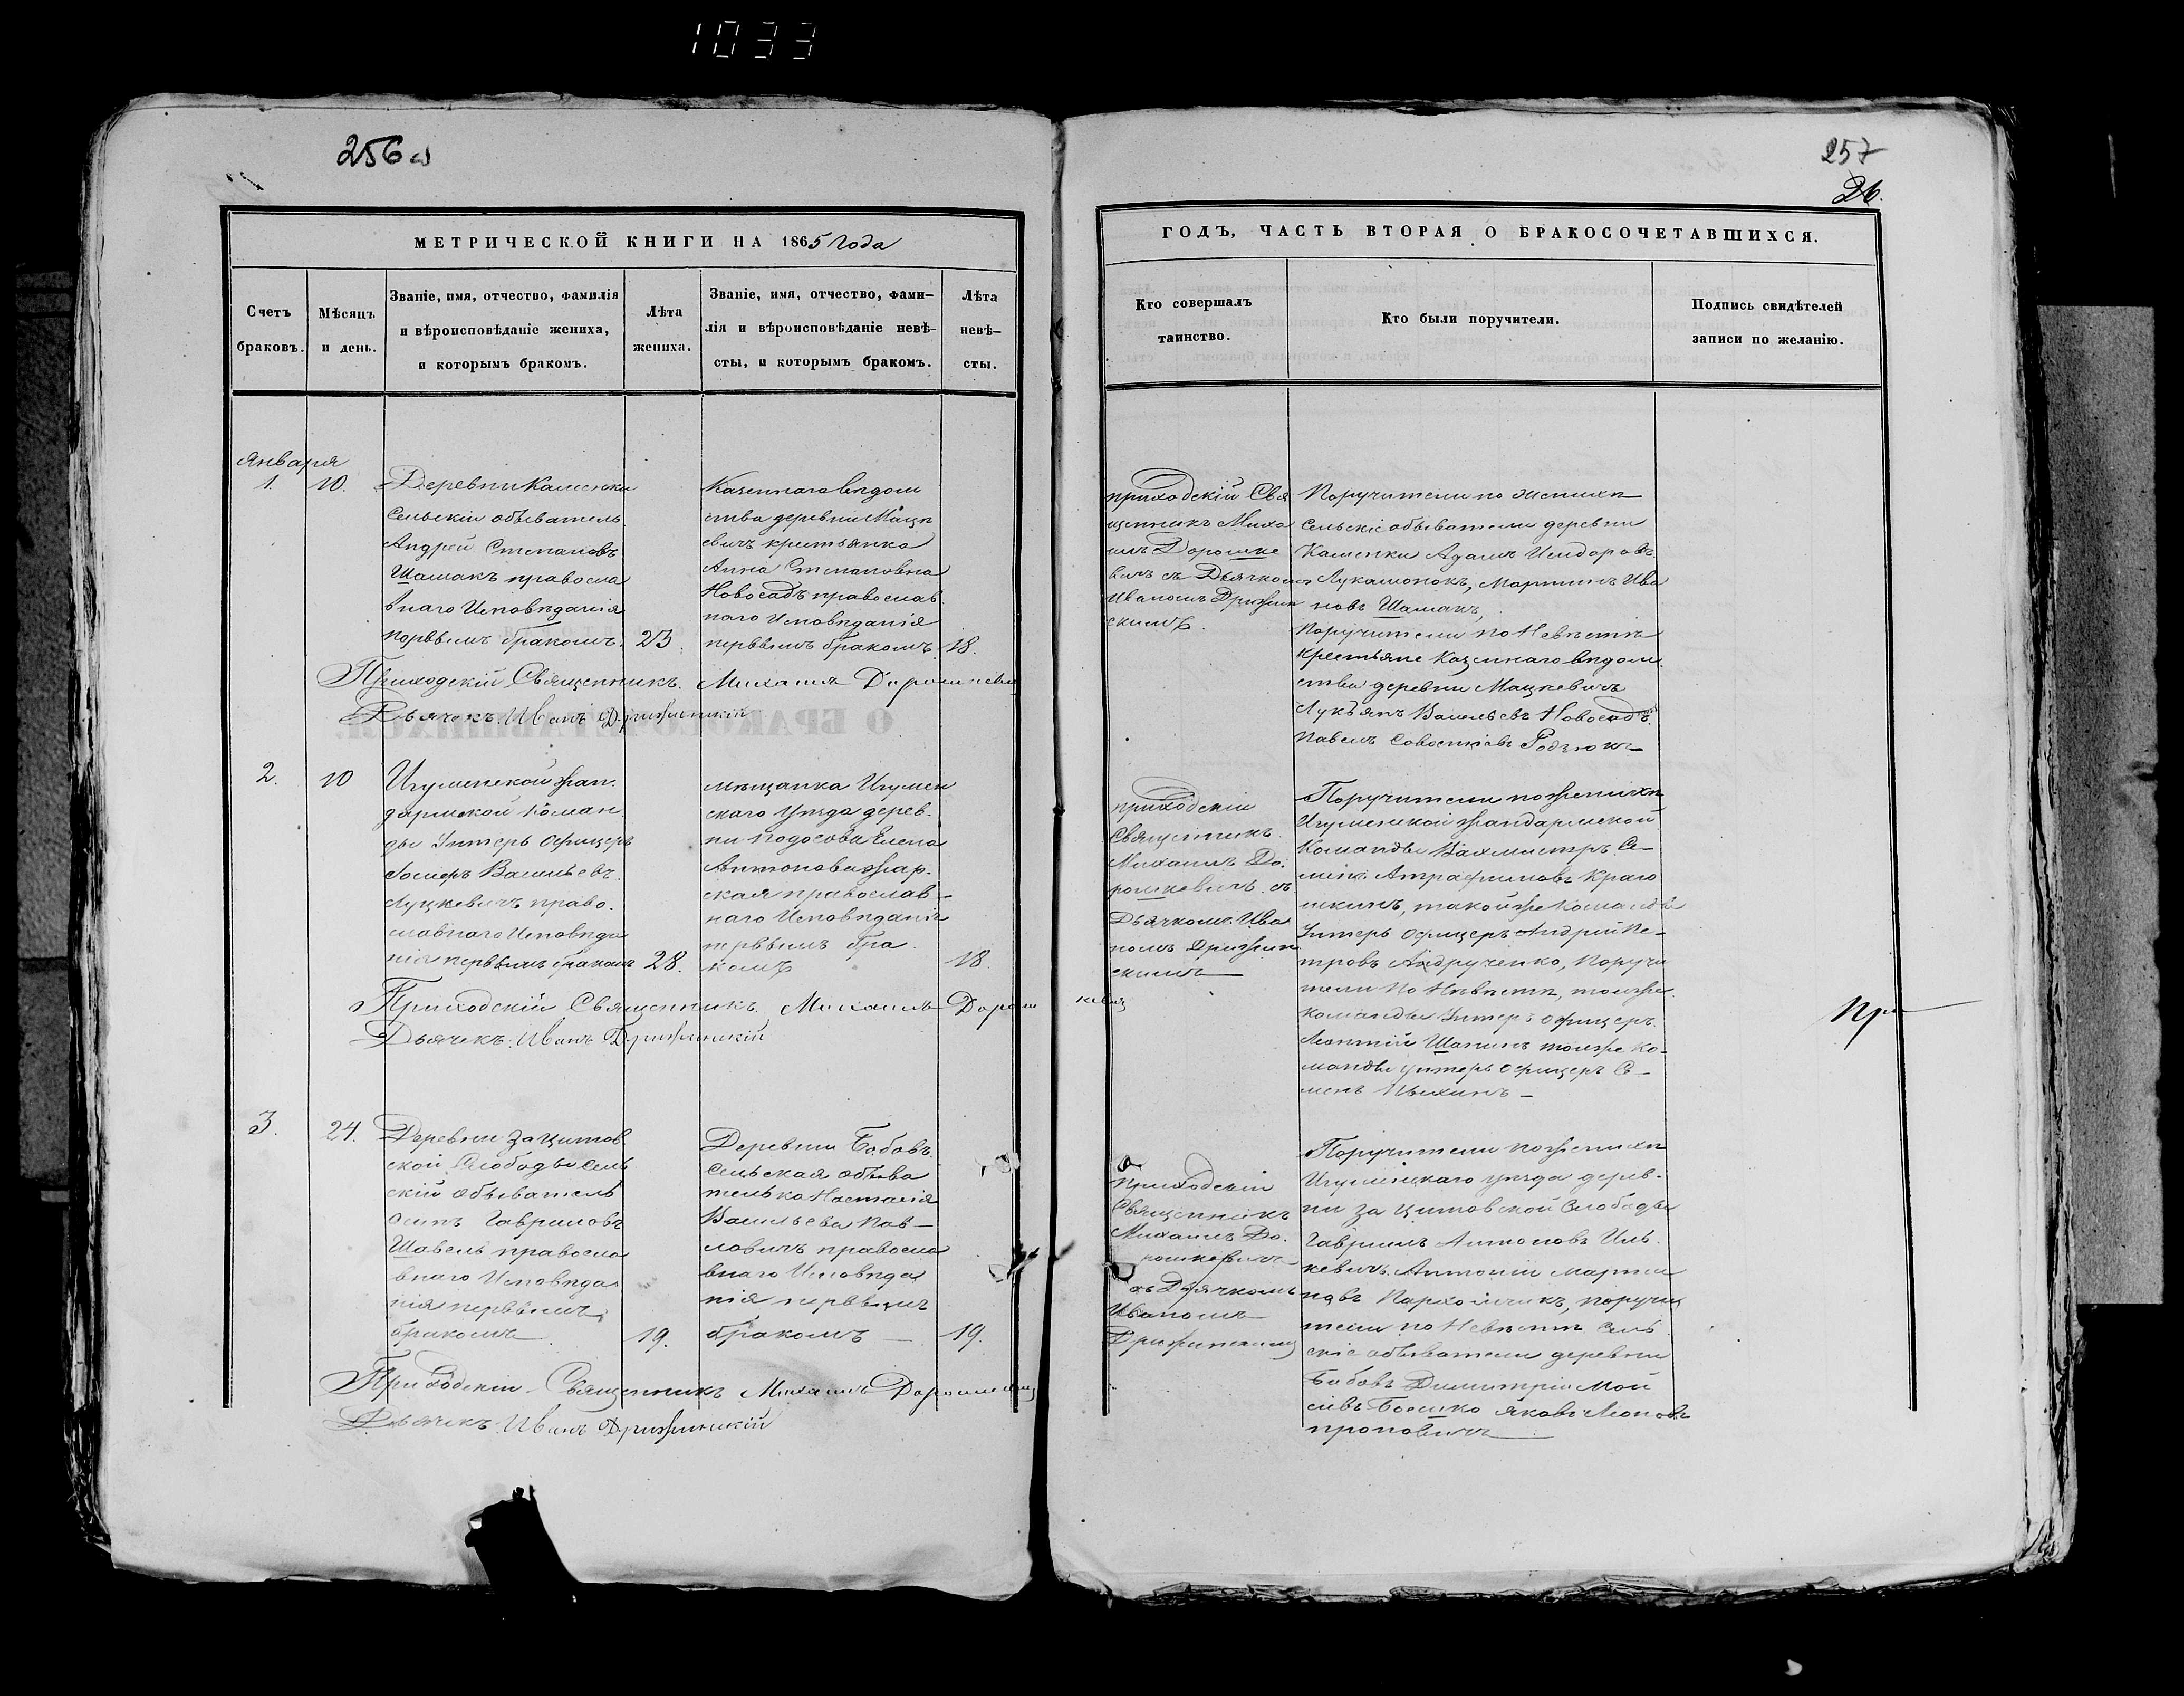 1033
256
257
26.
МЕТРИЧЕСКОЙ КНИГИ НА 1865 Года
Счетъ браковъ.
Мѣсяцъ и день.
Званіе, имя, отчество, фамилія
и вѣроисповѣданіе жениха,
и которымъ бракомъ.
Лѣта
жениха.
Званіе, имя, отчество, фами-
лія и вѣроисповѣданіе невѣ-
сты, и которымъ бракомъ.
Лѣта
невѣ-
сты.
Января
1.
10.
Деревни Каменки
Сельскій обыватель
Андрей Степановъ
Шамакъ правосла
внаго Исповѣданія
первымъ бракомъ.
23.
Казеннаго вѣдом
ства деревни Мацк
евичъ крестьянка
Анна Степановна
Новосадъ православ
наго Исповѣданія
первымъ бракомъ.
18.
Приходскій Священникъ. Михаилъ Дорошкевич
Дьячекъ. Иванъ Дрижинскій
2.
10
Игуменской жан.
дармской Коман
ды Унтеръ Офицеръ
Васильевъ.
Луцкевичъ право.
славнаго Исповѣда
нія первымъ бракомъ
28.
мѣщанка Игумен
скаго Уѣзда дерев.
ни Подосова Елена
Антонова Жар.
ская православ-
наго Исповѣданія
первымъ бра
комъ
18.
Приходскій Священникъ. Михаилъ Дорош кевич
Дьячекъ. Иванъ Дрижинскій
3.
24.
Деревни Зацитов
ской Слободы Сель
скій Обыватель
Осипъ Гавриловъ
Шавель правосла
внаго Исповѣда
нія первымъ
бракомъ
19.
Деревни Бабовъ
Сельская обыва
телька Настасія
Васильева Пав-
ловичъ правосла
внаго Исповѣда
нія первымъ
бракомъ -
19.
Приходскій Священникъ Михаилъ Дорошкевич
Дьячекъ. Иванъ Дрижинскій
ГОДЪ, ЧАСТЬ ВТОРАЯ О БРАКОСОЧЕТАВШИХСЯ.
Кто совершалъ
таинство.
Кто были поручители.
Подпись свидѣтелей
записи по желанію.
приходскій Свя
щенникъ Миха
илъ Дорошке
вичъ съ Дьячкомъ
Иваномъ Дрижин
скимъ.
Поручители по жениху
Сельскіе обыватели деревни
Каменки Адамъ Исидоровъ
Лукашонокъ, Мартинъ Ива
новъ Шамакъ,
Поручители по Невѣстѣ
крестьяне Казеннаго вѣдом
ства деревни Мацкевичъ
Лукьянъ Васильевъ Новосадъ.
Павелъ
приходскій
Священникъ.
Михаилъ До.
рошкевичъ. съ
Дьячкомъ. Ива
номъ Дрижин
скимъ
Поручители по жениху
Игуменской жандармской
Команды Вахмистръ Се-
такой же Команды
Унтеръ Офицеръ Андрей Пе-
тровъ Андрученко, Поручи
тели по Невѣстѣ, тойже
команды Унтеръ Офицеръ.
Леонтій Шапинъ тойже Ко-
манды Унтеръ Офицеръ Се-
менъ
Пр
приходскій
Священникъ
Михаилъ До.
рошкевичъ
съ Дьячкомъ
Иваномъ
Дрижинским
Поручители по жениху
Игуменскаго уѣзда дерев.
ни Зацитовской Слободы
Гавріилъ Антоновъ Иль.
кевичъ. Антоній Марти
новъ Пархомчикъ, поручи
тели по Невѣстѣ Сель
скіе обыватели деревни
Бабовъ Димитрій Мой
сѣевъ Бошко Яковъ